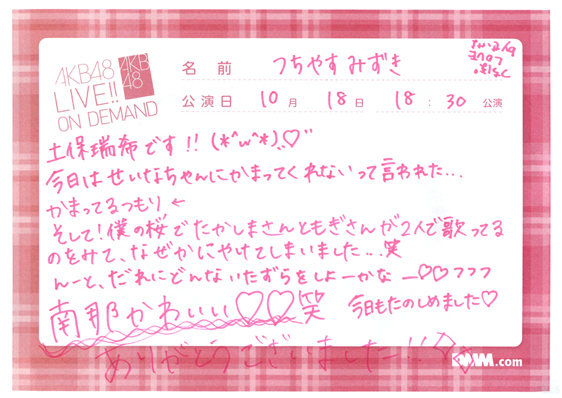 AKB48
LIVE!!
ON DEMAND
AKB
48
名前 つちやすみずき
公演日 10月 18日 18:30 公演
土保瑞希です!! (*^ω^*)♡"
今日はせいなちゃんにかまってくれないって言われた...
かまってるつもり←
そして!僕の桜でたかしまさんともぎさんが2人で歌ってる
のをみて、なぜかにやけてしまいました...笑
んーと、だれにどんないたずらをしよーかなー♡♡フフフ
南那かわいい♡♡笑 今日もたのしめました♡
ありがとうございましたー!!♡♡
DMM.com